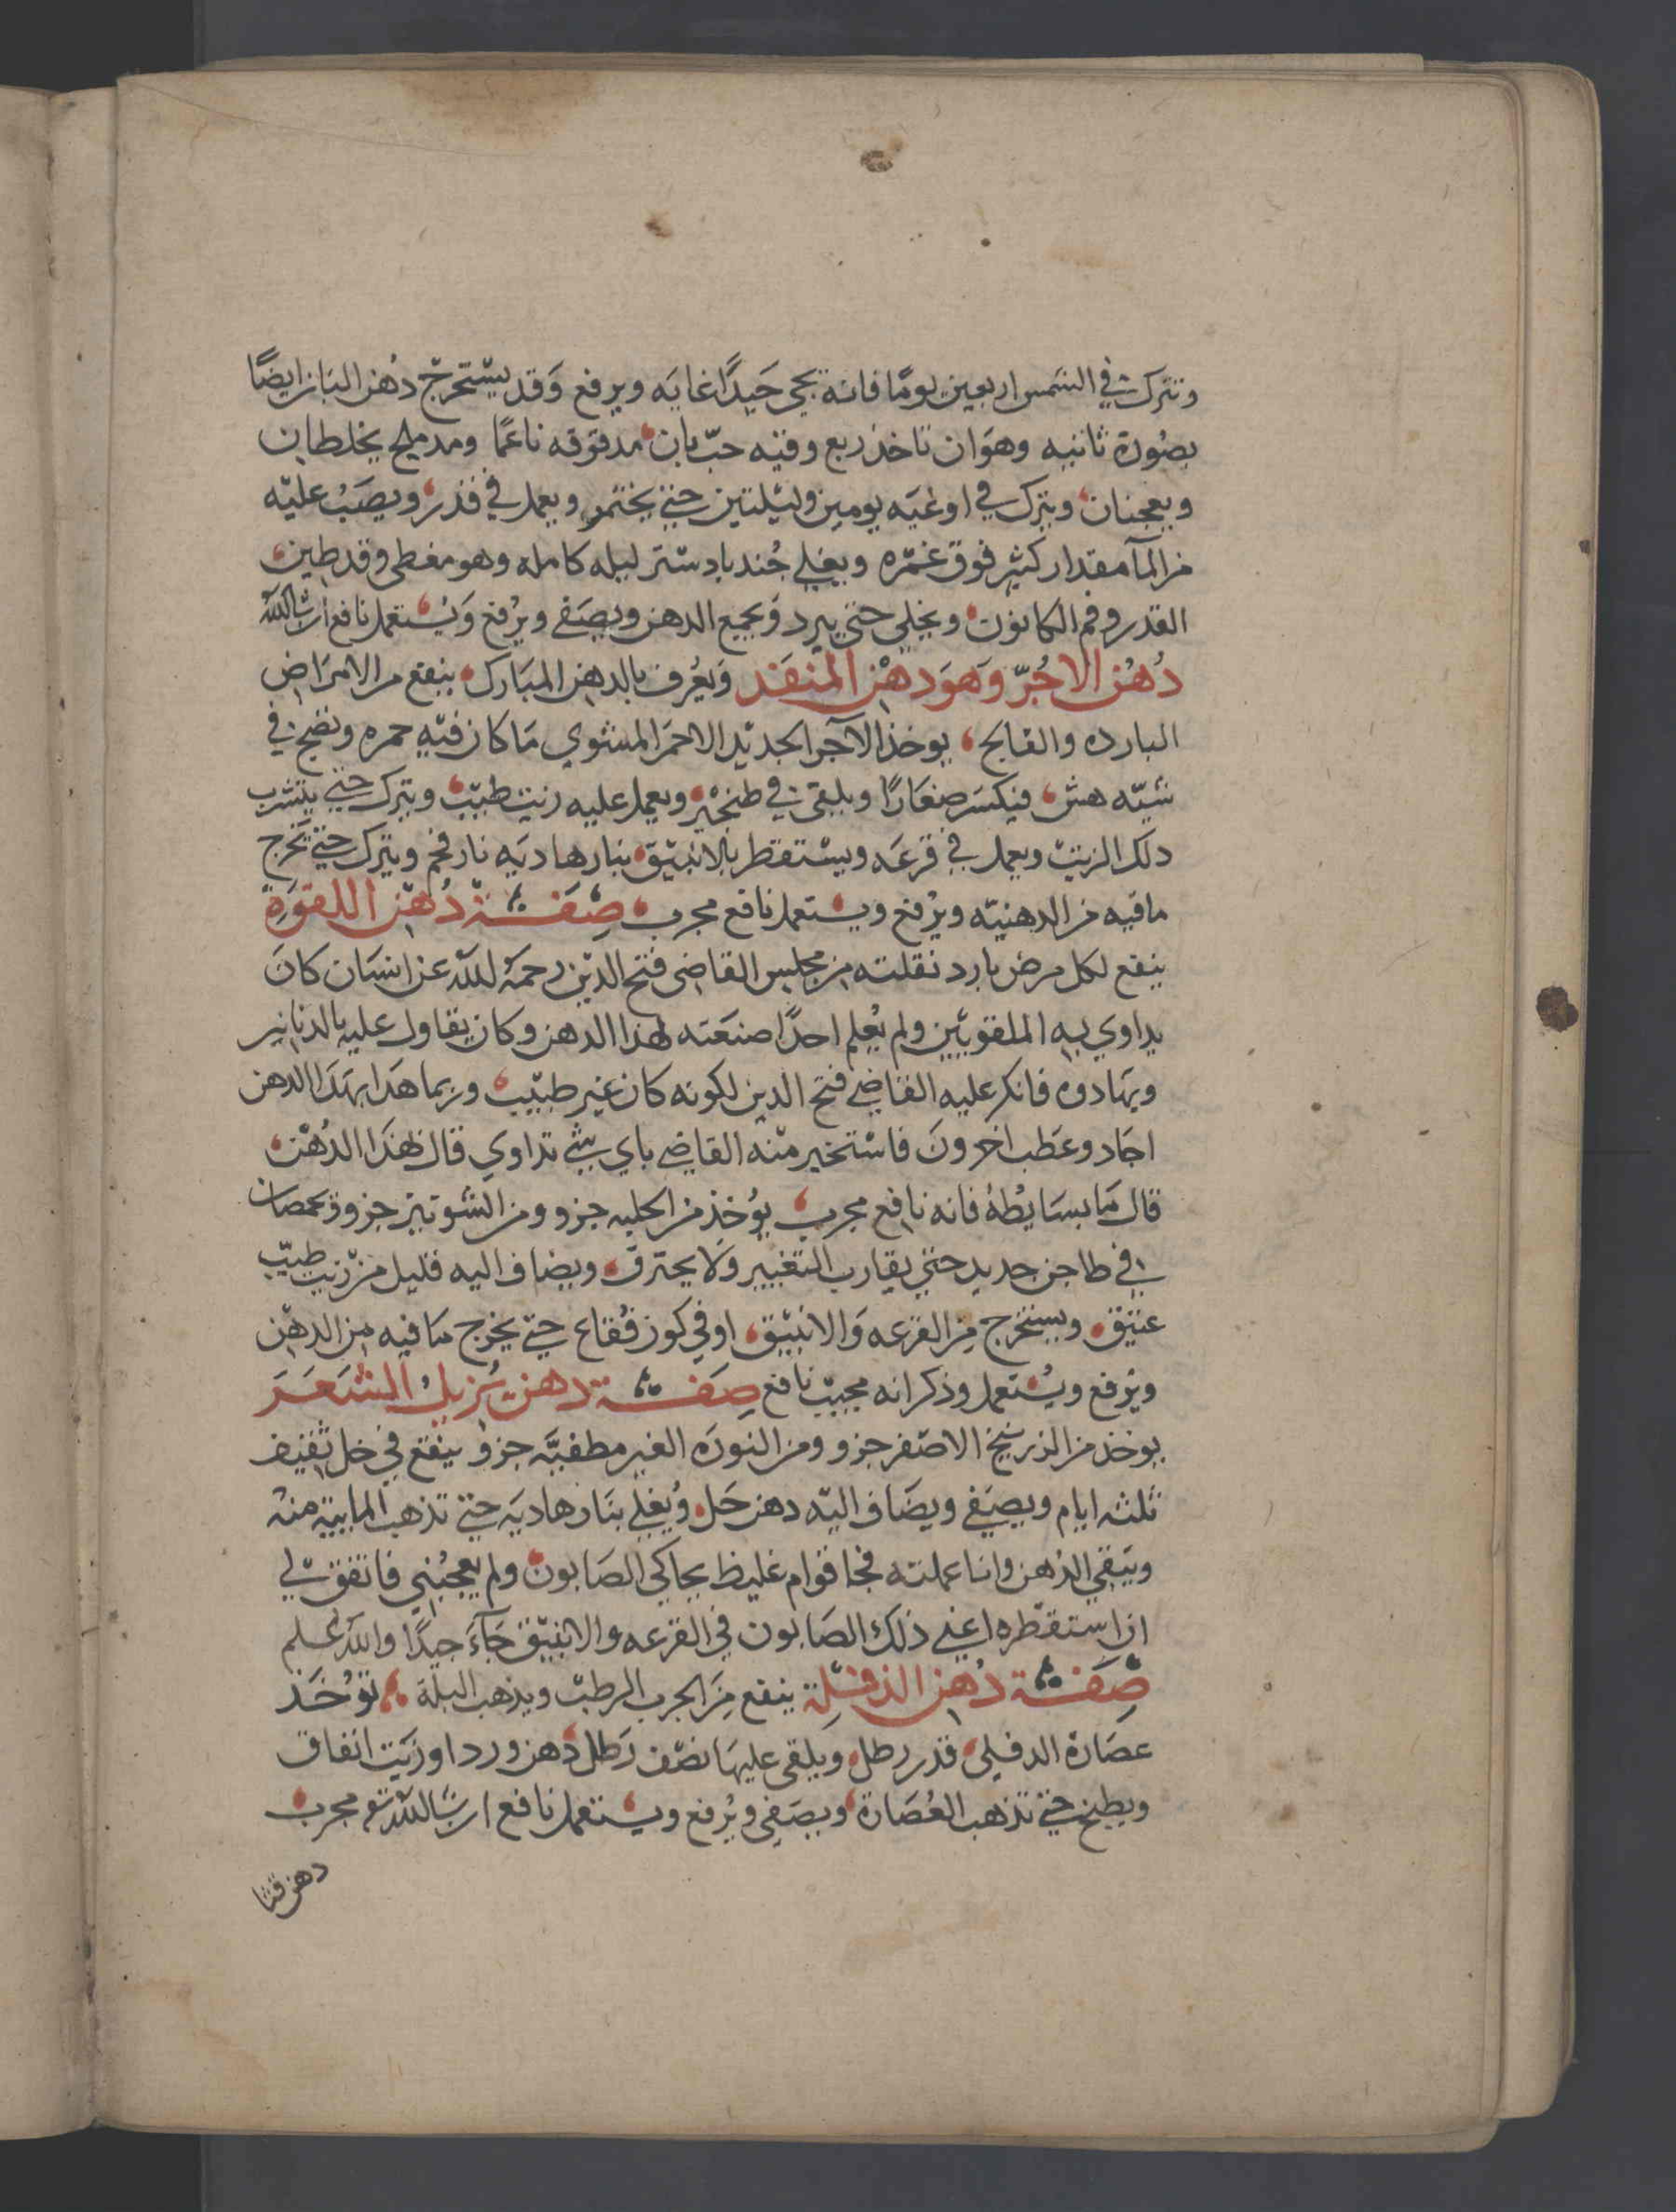 وتترك في الشمس اربعين يومًا فانه يجي جيدًا غايه ويرفع وَقد يسْتخرج دُهن البَان ايضًا
بصُورة ثانيه وهوَ ان تاخذ ربع وقيه حبّ بان مدقوقه ناعمًا ومد ملح يخلطان
ويعجنان ويترك في اوعيَه يومين وليْلتين حتي يختمر ويعمل في قدر ويصَبُ عليْه
من المآ مقدار كثير فوق غمْره ويغلي جُند بادستر ليله كامله وهو مغطى وقد طين
القدر وفم الكانون ويخلي حتي يبرد وَيجمع الدهن ويصَفى ويرْفع وَيُستعمل نافع ان شا الله
دُهْن الاجُرّ وَهوَ دهْن المنفَد وَيعُرف بالدهن المبَارك ينفع من الامرَاض
البارده والفالج يوخذ الآجر الجديْد الاحمَر المشوي مَا كان فيْهِ حمره ونضج في
شيّه هش فيكسَر صغَارًا ويلقى في طنجْير ويعمل عليه زيت طيبّ ويترك حتي يتشرب
دلك الزيت ويعمل في قرعَه ويسْتقطر بالانبيْق بنار هاديَه نار فحم ويترك حتي تخرج
مافيه من الدهنيّه ويرْفع ويستعمل نافع مجرب صِفَة دُهْن اللقوَة
ينفع لكل مرض بارد نقلته من مجلس القاضى فتح الدّين رحمهُ الله عن انسَان كانَ
يداوي به الملقويّين ولم يُعلم احدًا صنعَته لهذا الدهن وكان يقاول عليه بالدنانير
ويهادوه فانكر عليه القاضي فتح الدين لكونه كان غير طبيْب وربما هَدا بهَدَا الدهن
اجَاد وعَطب اخرونَ فاسْتخير منْه القاضي باي شي تداوي قال بهَذا الدُهْن
قال مَا بسَايطُهُ فانه نافع مجرب يُوخذ من الحلبه جزو ومن الشونيز جزو ويحمصان
في طاجن حديد حتي يقارب التغيير ولَا يحترق ويضاف اليه قليل منْ زيت طيّب
عتيْق ويستخرج مِن القرعه وَالانبيْق اوفي كوز فقاع حتي يخرج مَا فيه من الدهْن
ويرْفع ويُستعمل وذكر انه مجيبّ نافع صِفَة دهن يُزيلُ الشعَر
يوخذ من الزرنيخ الاصْفر جزو ومن النورَه الغير مطفيَّه جزو ينقع في خل ثقيف
ثلثه ايام ويصَفي ويضَاف اليْه دهن حَل وُيغلي بنَار هاديَه حتي تذهب المابيّه منهُ
ويَبقي الدُهن وانا عملته فجا قوام غليظ يحاكي الصَابون ولم يعجبُني فاتفق لي
ان استقطره اعني ذلك الصَابون في القرعه والانبيْق جَآءَ جيدًا والله اعلم
صِفَة دُهن الدفلة ينفع مِن الجرب الرطب ويذهب البلة تؤخَد
عصَارة الدفلي قدر رطل ويلقى عليهَا نصْف رَطل دُهن ورد او زيَت انفاق
ويطبخ حتي تذهب العُصَارة ويصَفي ويُرفع ويستعمل نافع ان شا الله تع مجرب
دهن قثا